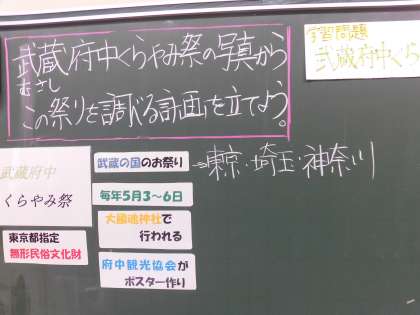 武蔵府中くらやみ祭の写真から
むさし
この祭りを調べる計画を立てよう。
学習問題
武蔵府中くら
武蔵府中
くらやみ祭
武蔵の国のお祭り
⇒東京・埼玉・神奈川
毎年5月3～6日
大國魂神社で
行われる
東京都指定
無形民俗文化財
府中観光協会が
ポスター作り